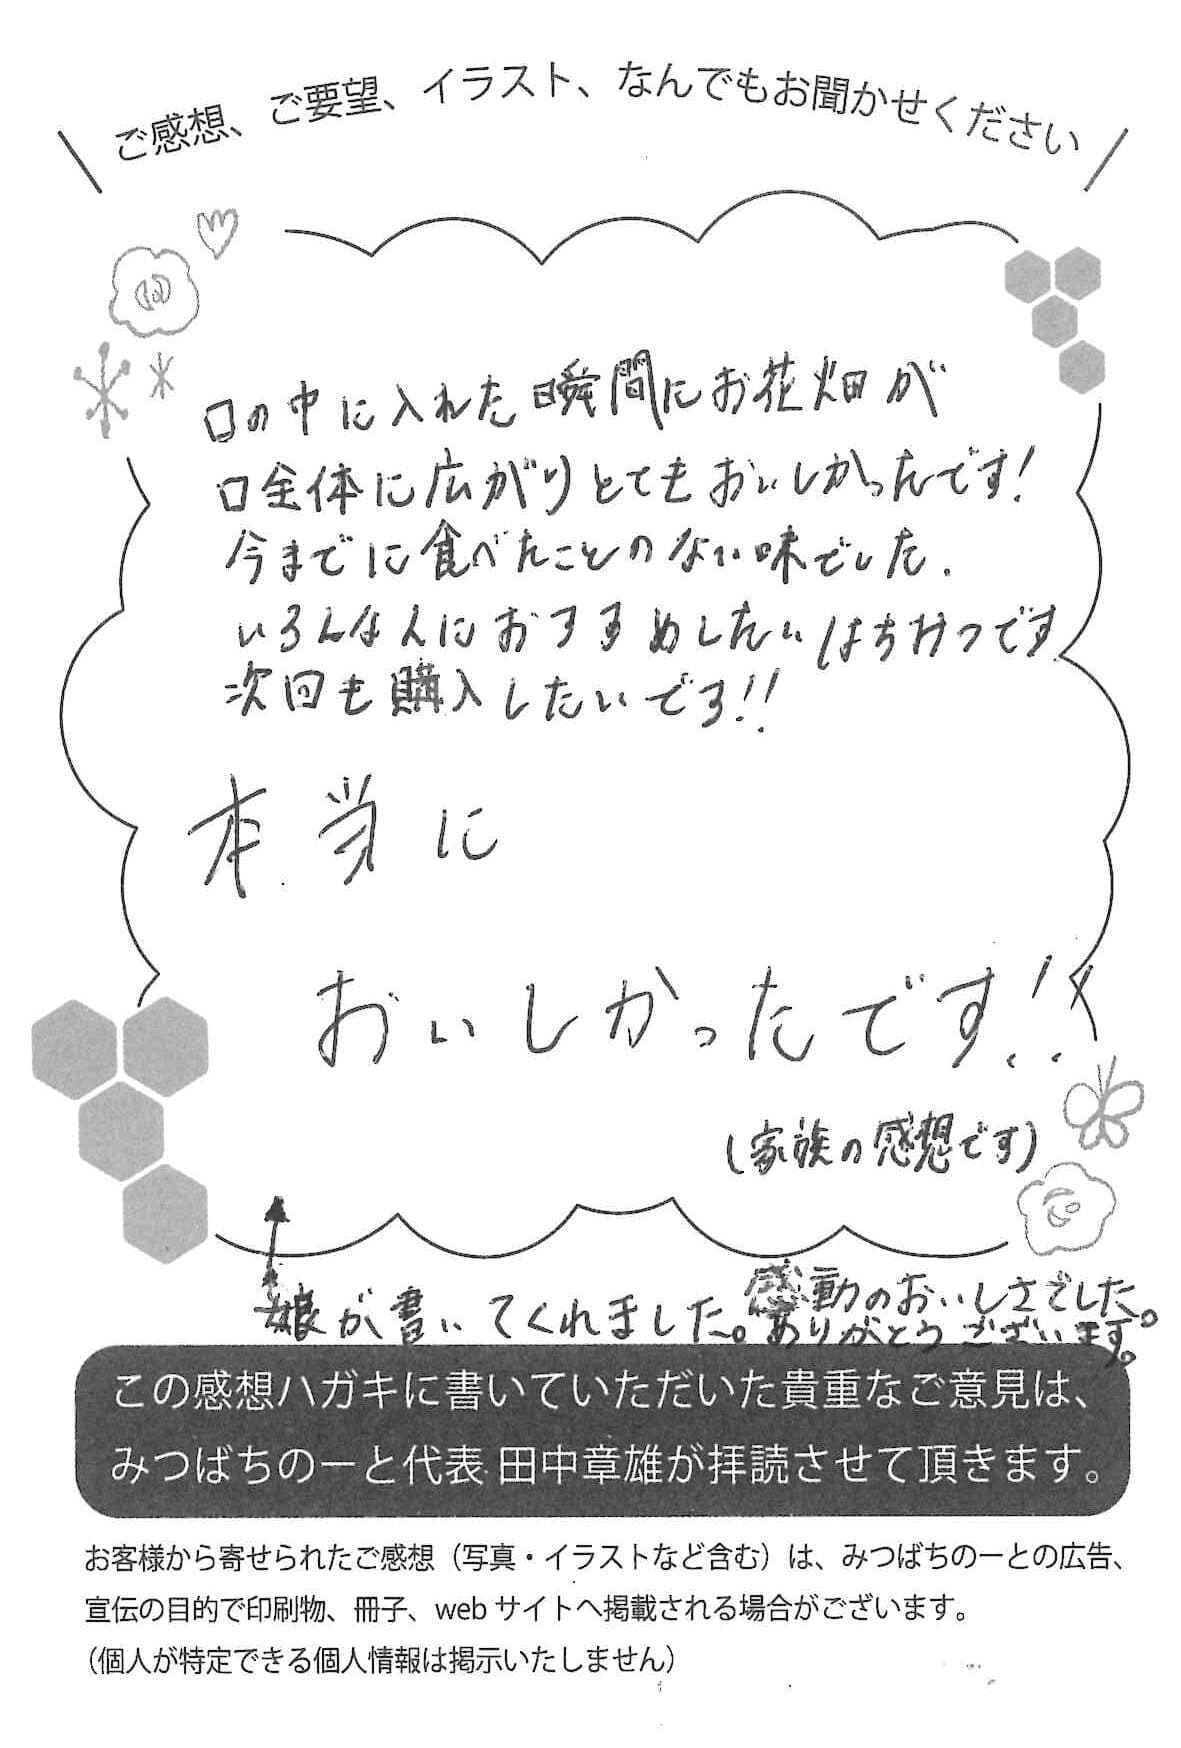 ご感想、ご要望、イラスト、なんでもお聞かせください
口の中に入れた瞬間にお花畑が
口全体に広がりとてもおいしかったです！
今までに食べたことのない味でした．
いろんな人におすすめしたいはちみつです
次回も購入したいです!!
本当に
おいしかったです!!
(家族の感想です)
娘が書いてくれました。感動のおいしさでした。
ありがとうございます。
この感想ハガキに書いていただいた貴重なご意見は、
みつばちのーと代表 田中章雄が拝読させて頂きます。
お客様から寄せられたご感想（写真・イラストなど含む）は、みつばちのーとの広告、
宣伝の目的で印刷物、冊子、web サイトへ掲載される場合がございます。
（個人が特定できる個人情報は掲示いたしません）